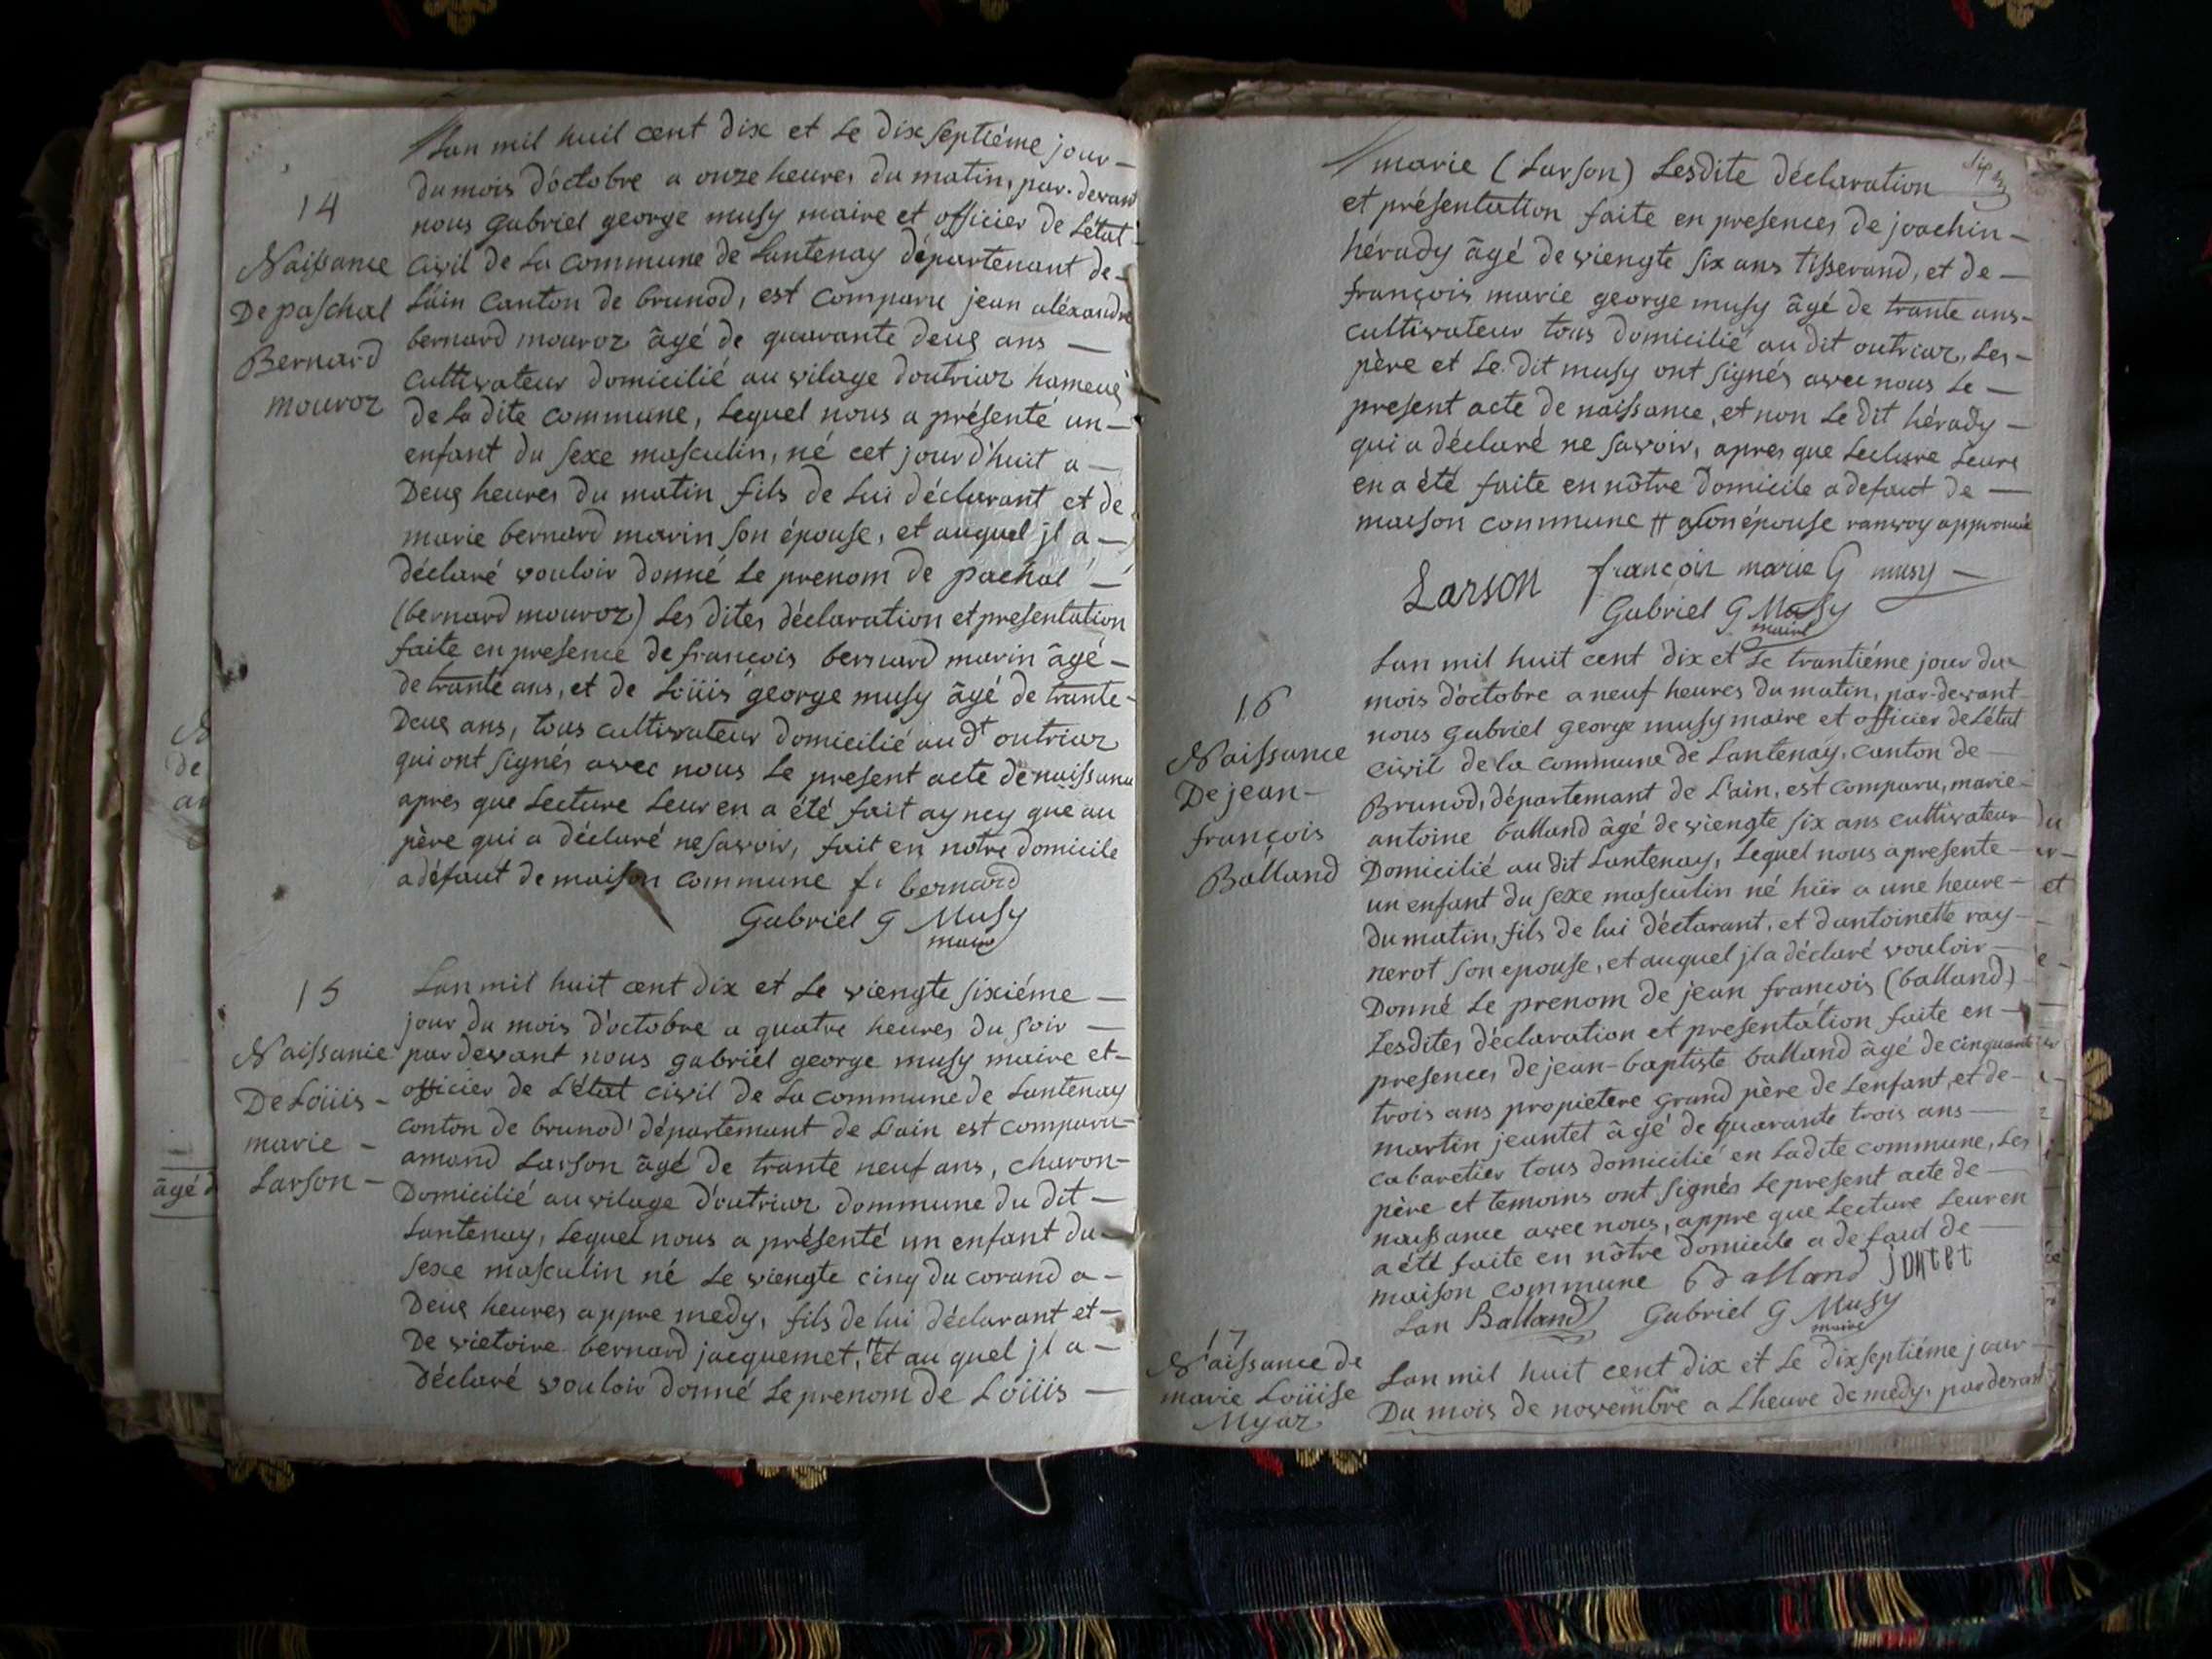 14
Naissance
De paschal
Bernard
mouroz
Lan mil huil cent dix et le dix septiéme jour –
du mois doctobre a onze heures du matin, par-devant
nous gabriel george musy maire et officier de Létat –
civil de La commune de Lantenay département de –
Láin canton de brunod, est comparu jean aléxandre
bernard mouroz âgé de quarante deux ans —
cultivateur domicilié au vilage doutriaz hameux
de La dite commune, Lequel nous a présenté un –
enfant du sexe masculin, né cet jourd'huit a –
Deux heures du matin fils de Lui déclarant et de
marie bernard marin son épouse, et auquel jl a –
déclaré vouloir donné Le prenom de pachal –
(bernard mouroz) Les dites déclaration et presentation
faite en presence de francois bernard marin âgé –
de trante ans, et de Loüis george musy âgé de trante –
Deux ans, tous cultivateur domicilié aud^t outriaz
qui ont signés avec nous Le present acte de naissance
apres que Lecture Leur en a été fait ay ney que au
père qui a déclaré ne savoir, fait en notre domicile
a défaut de maison commune f. bernard
Gabriel G Musy
maire
15
Naissance
De Loüis –
marie –
Larson –
Lan mil huit cent dix et Le viengte sixiéme —
jour du mois d'octobre a quatre heures du soir —
par devant nous gabriel george musy maire et –
officier de Létat civil de La commune de Lantenay
conton de brunod département de Lain est comparu –
amand Larson âgé de trante neuf ans, charon –
Domicilié au vilage d'outriaz dommune du dit –
Lantenay, Lequel nous a présenté un enfant du –
sexe masculin né Le viengte cinq du corand a –
Deux heures appre medy, fils de lui déclarant et –
De victoire bernard jacquemet, et au quel jl a –
déclaré vouloir donné Le prenom de Loüis —
marie (Larson) Lesdite déclaration
et présentation faite en presences de joachin –
hérady âgé de viengte six ans tisserand, et de –
françois marie george musy âgé de trante ans –
cultivateur tous domicilié au dit outriaz, Les –
père et Le dit musy ont signés avec nous Le –
present acte de naissance, et non Le dit hérady –
qui a déclaré ne savoir, apres que Lecture Leurs
en a été faite en nôtre domicile a defaut de —
maison commune # a son épouse ranvoy approuvé
Larson françois marie G musy –
Gabriel G Musy
maire
16
Naissance
De jean –
françois
Balland
Lan mil huit cent dix et Le trantiéme jour du
mois d'octobre a neuf heures du matin, par-devant
nous gabriel george musy maire et officier de Létat
civil de la commune de Lantenay, canton de –
Brunod, département de L'ain, est comparu, marie –
antoine balland âgé de viengte six ans cultivateur
Domicilié au dit Lantenay, Lequel nous a presente –
un enfant du sexe masculin né hïer a une heure –
du matin, fils de lui déclarant, et dantoinette ray –
nerot son epouse, et auquel jl a déclaré vouloir –
Donné Le prenom de jean francois (balland)
Lesdites déclaration et presentation faite en –
presences de jean-baptiste balland âgé de cinquante
trois ans propietere grand père de Lenfant, et de –
martin jeantet âgé de quarante trois ans —
cabaretier tous domicilié en Ladite commune, Les
père et temoins ont signés Le present acte de –
naissance avec nous, appre que Lecture Leur en
a été faite en nôtre domicile a defaut de —
maison commune b Balland jantet
Lan Balland Gabriel G Musy
maire
17
Naissance de
marie Loüise
Myaz
Lan mil huit cent dix et Le dixseptiéme jour –
Du mois de novembre a Lheure de medy, par devant